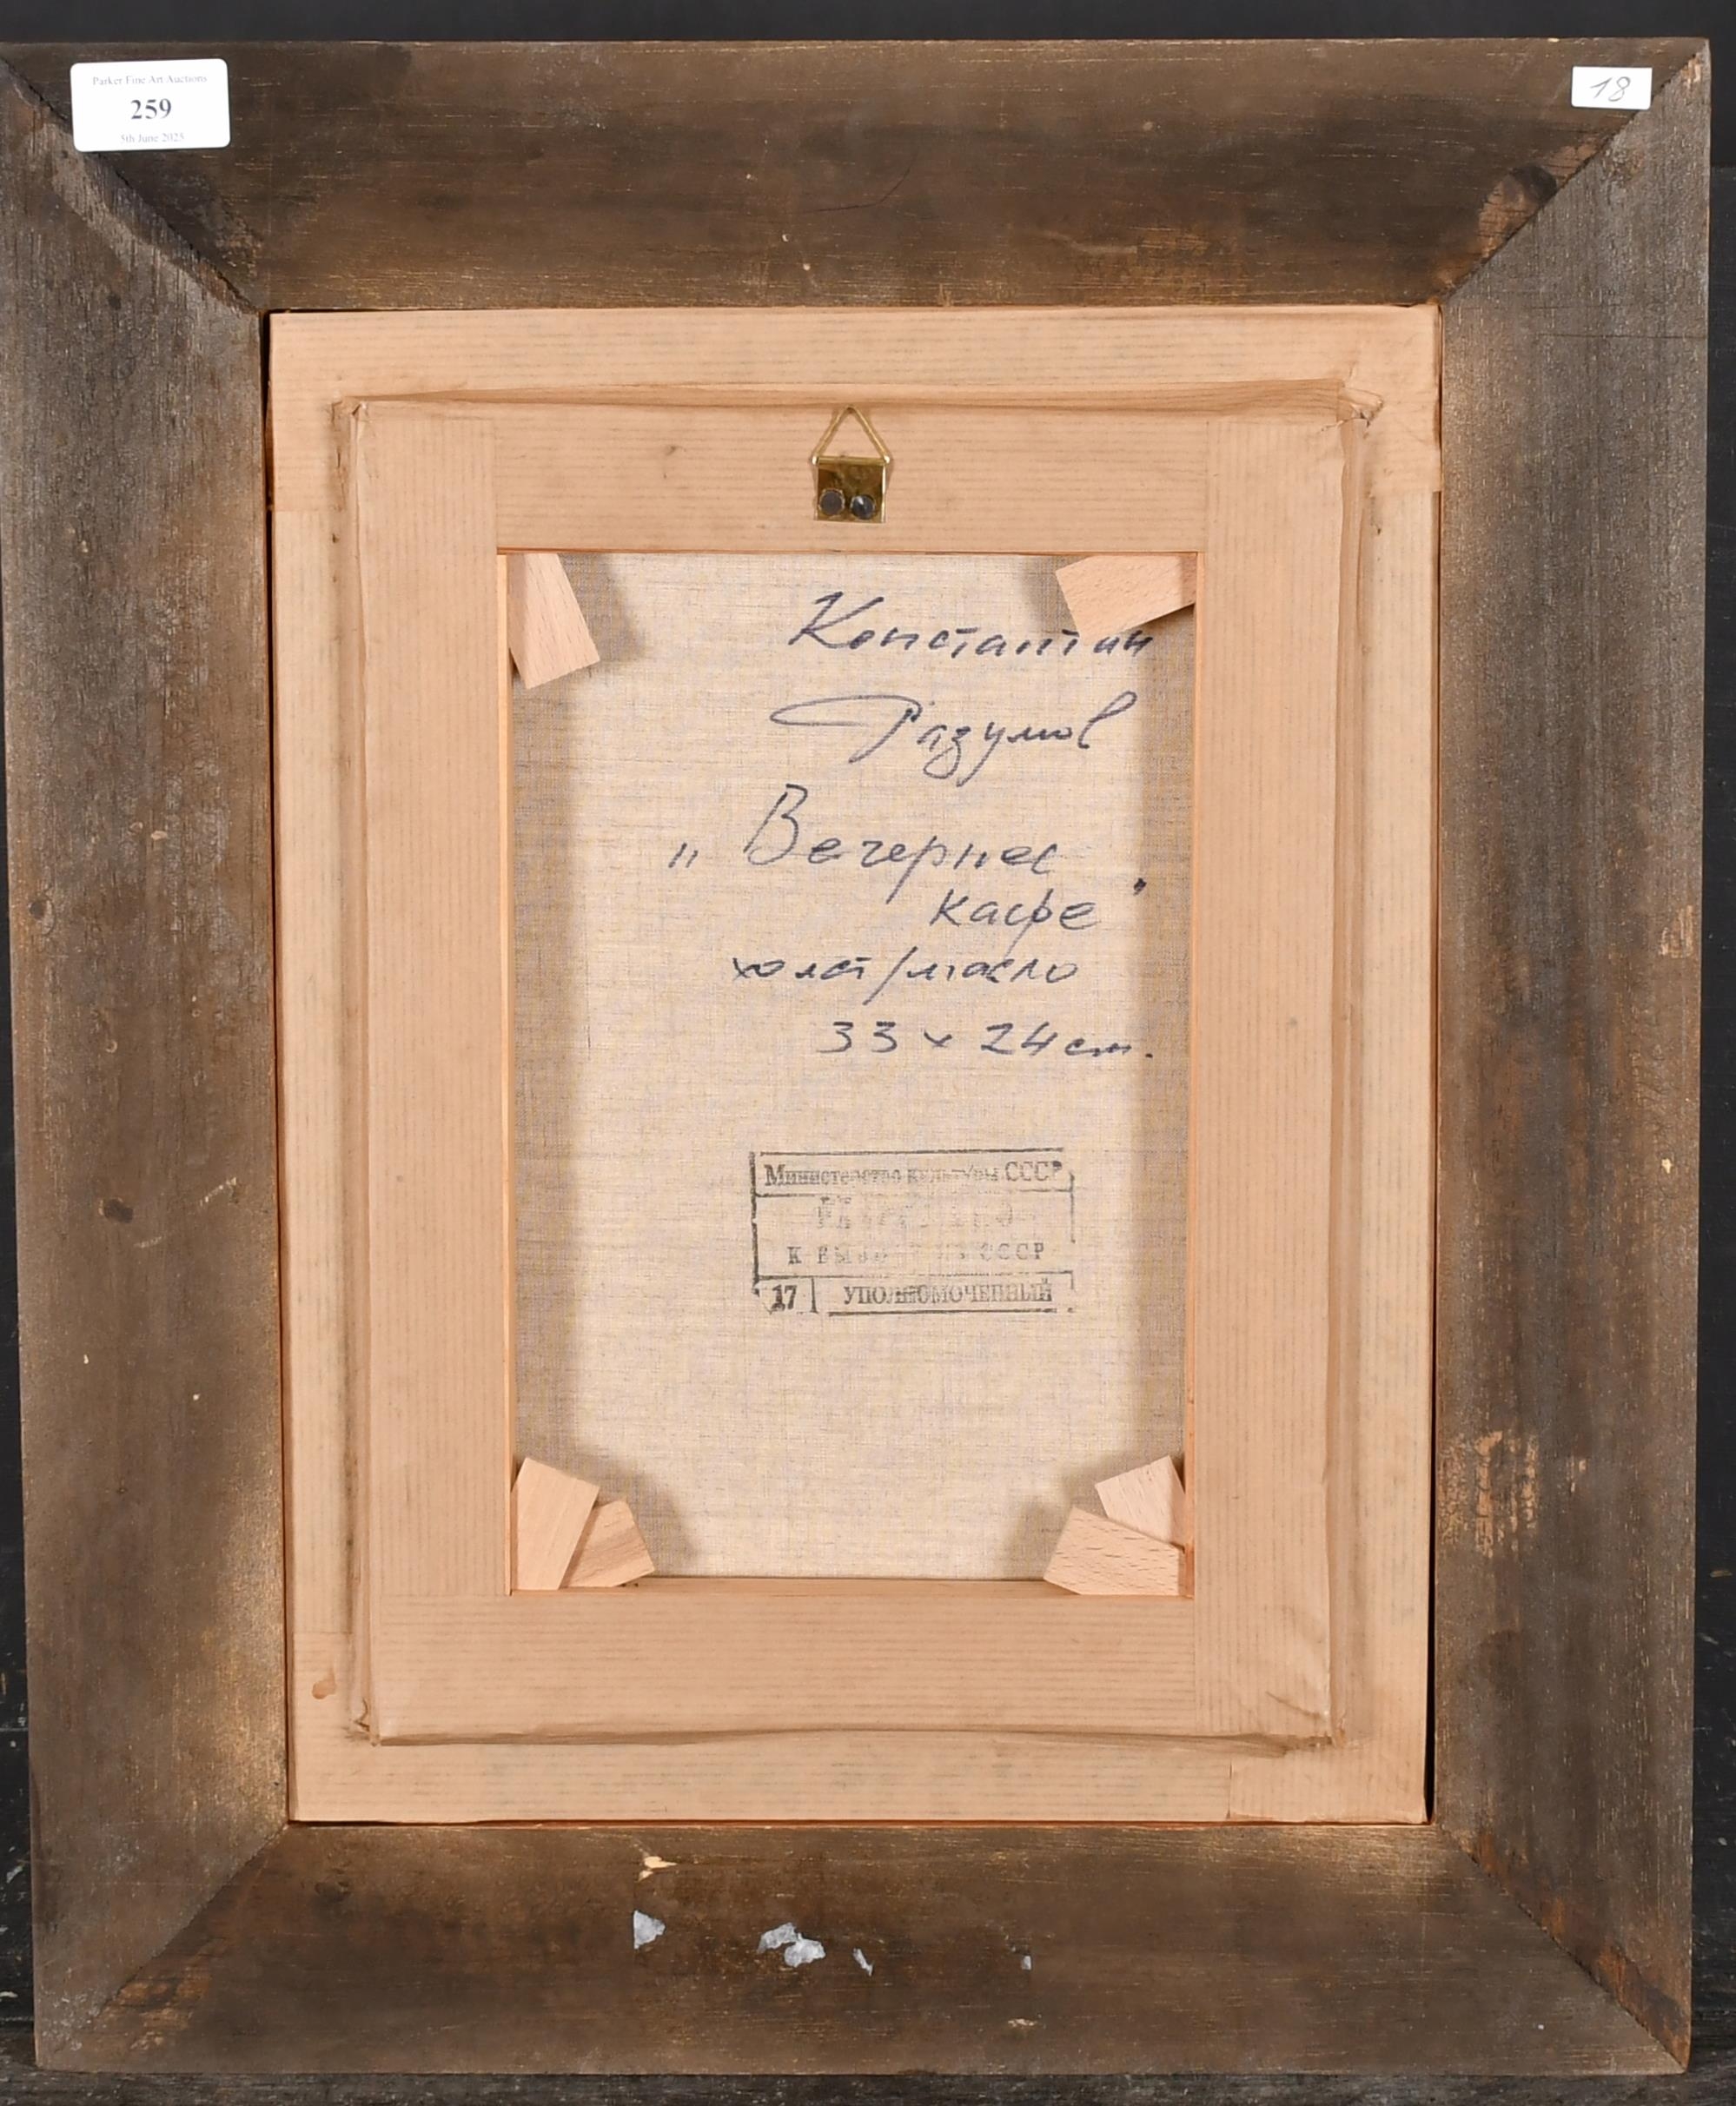 Parker Fine Art Auctions
259
5th June 2025
18
Константин
Разумов
„ Вечернее
кафе"
холст/масло
33 x 24 см.
Министерство культуры СССР
К СССР
17 УПОЛНОМОЧЕННЫЙ